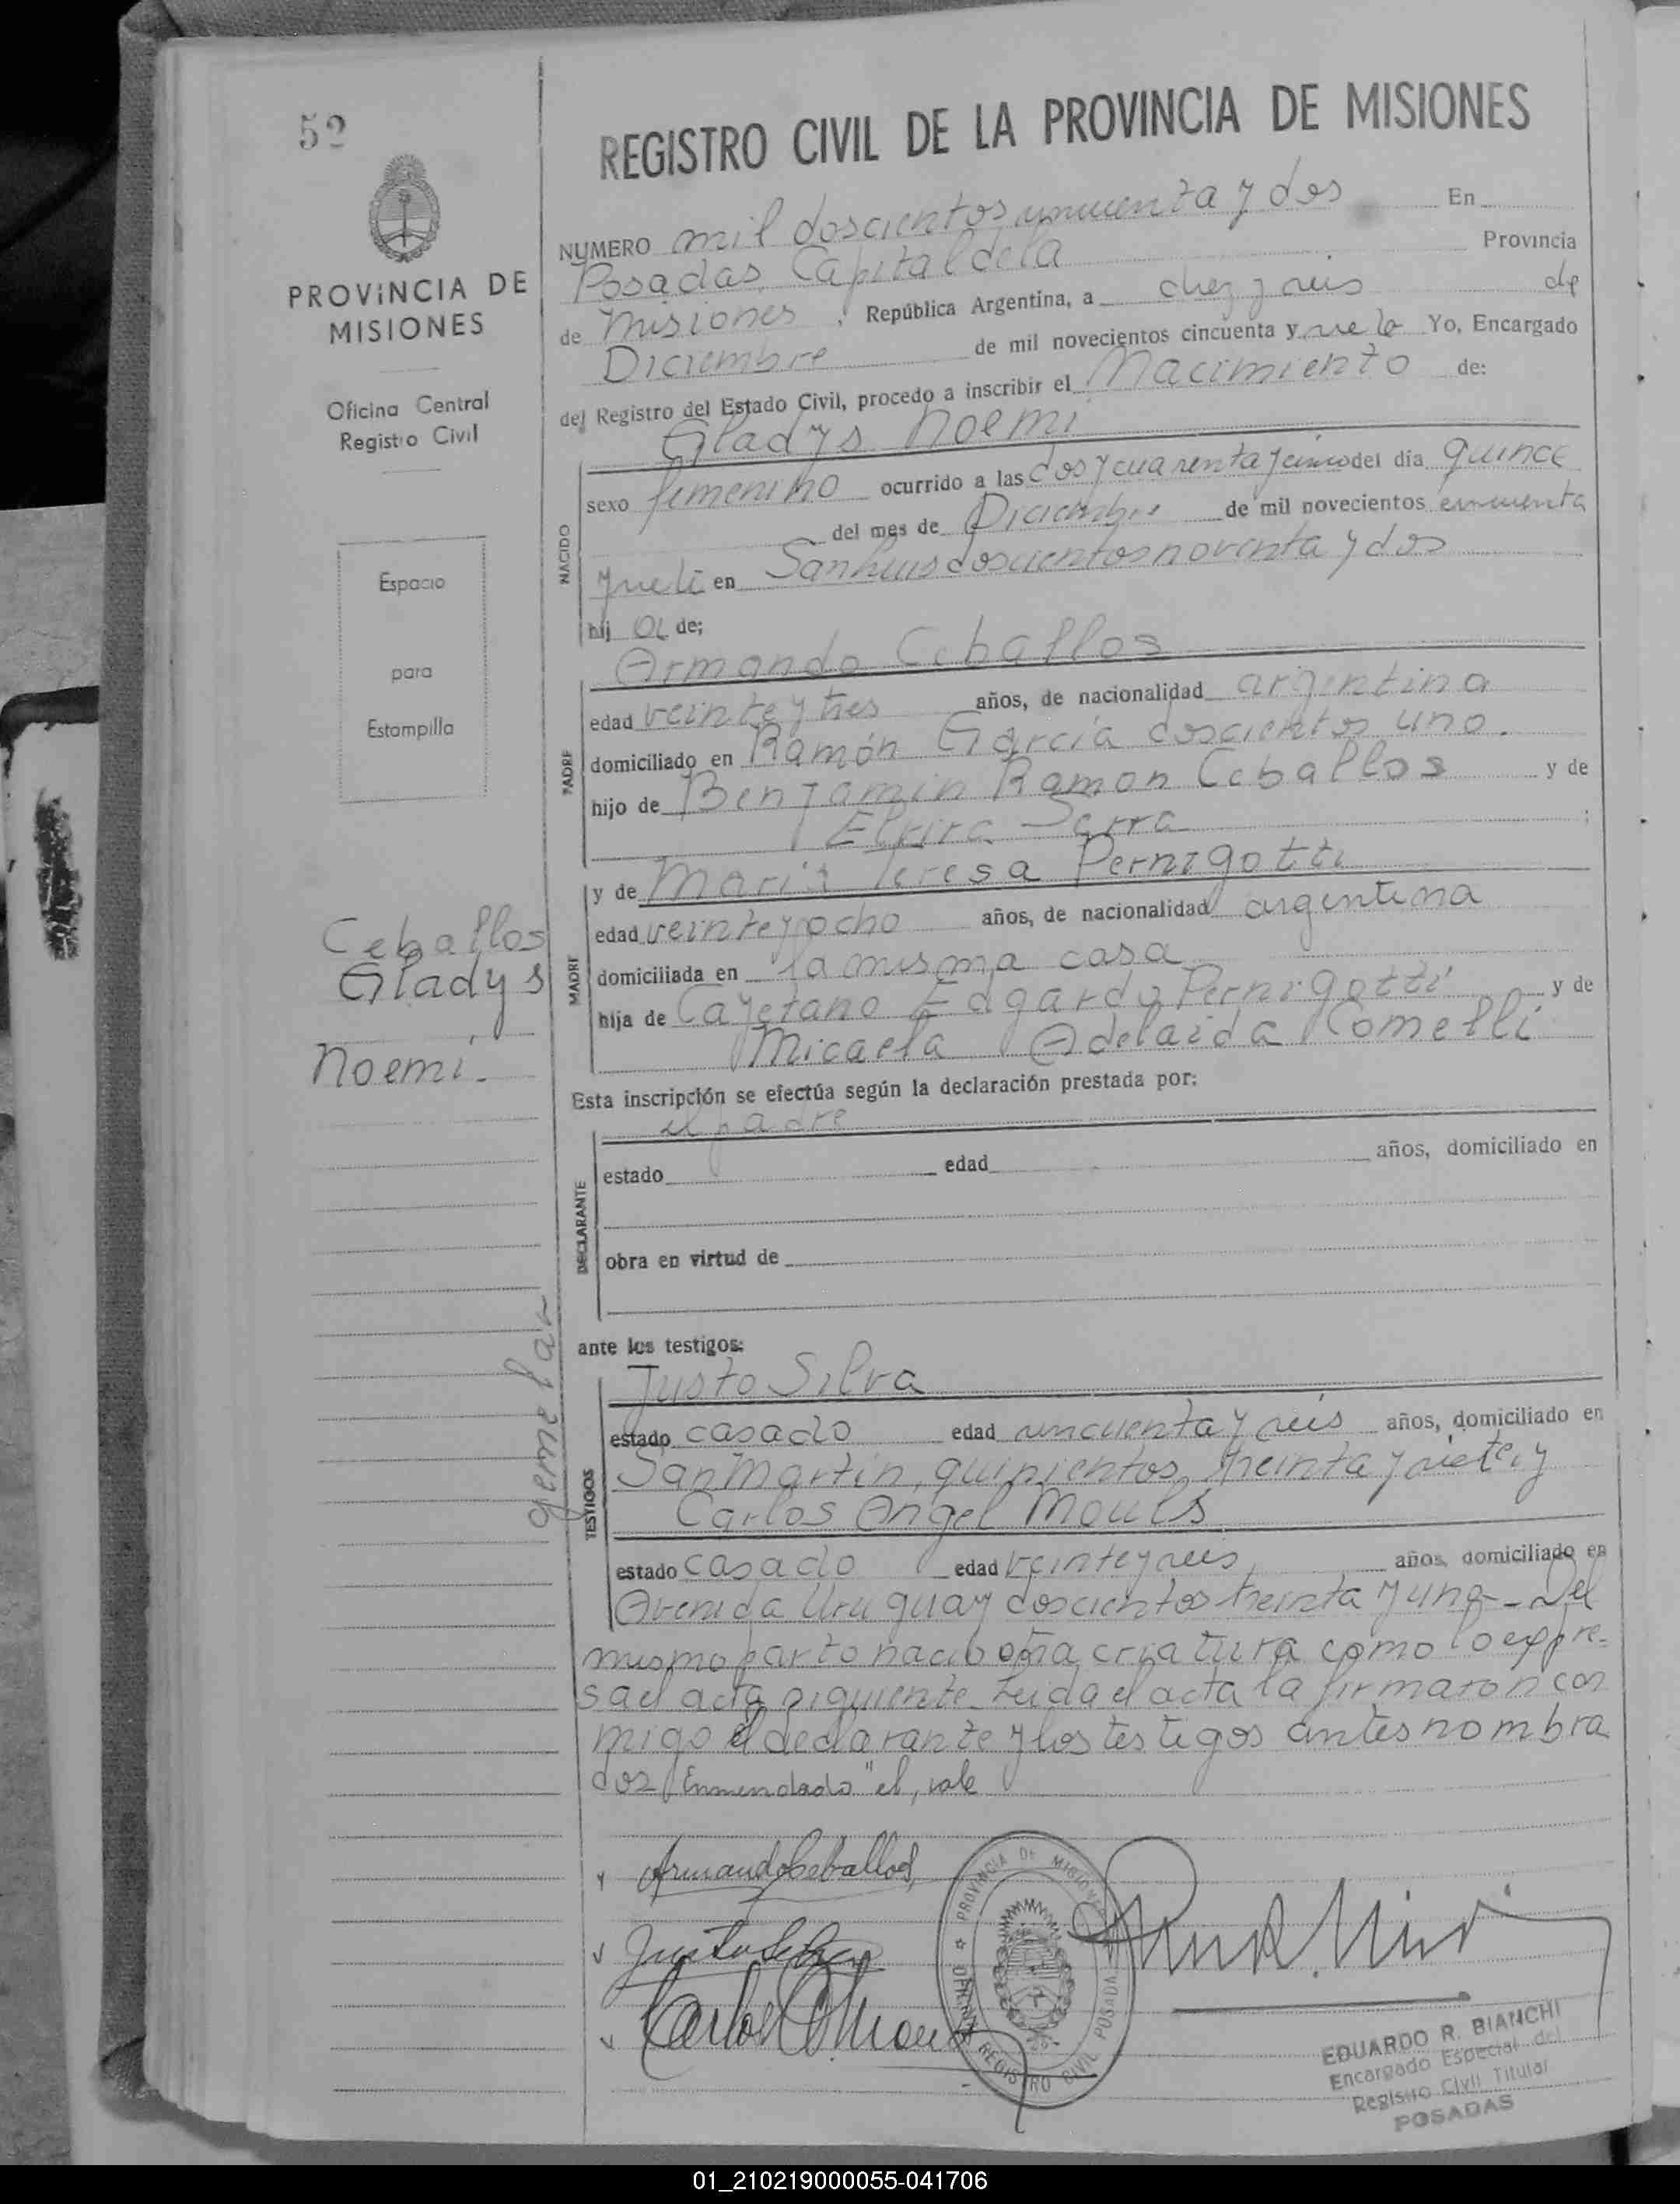 52
PROVINCIA DE
MISIONES
Oficina Central
Registro Civil
Espacio
para
Estampilla
Ceballos
Gladys
Noemi.-
gemelar
REGISTRO CIVIL DE LA PROVINCIA DE MISIONES
NUMERO mil doscientos cincuenta y dos En
Posadas, Capital de la Provincia
de Misiones, República Argentina, a diez y seis de
Diciembre de mil novecientos cincuenta y siete Yo, Encargado
del Registro del Estado Civil, procedo a inscribir el Nacimiento de:
Gladys Noemi
NACIDO
sexo femenino ocurrido a las dos y cuarenta y cinco del día quince
del mes de Diciembre de mil novecientos cincuenta
y siete en San Luis doscientos noventa y dos
hij a de;
Armando Ceballos
PADRE
edad veinte y tres años, de nacionalidad argentina
domiciliado en Ramón García doscientos uno.
hijo de Benjamin Ramon Ceballos y de
Elvira Serra ;
MADRE
y de Maria Teresa Pernigotti
edad veinte y ocho años, de nacionalidad argentina
domiciliada en la misma casa
hija de Cayetano Edgardo Pernigotti y de
Micaela Adelaida Comelli
Esta inscripción se efectúa según la declaración prestada por:
el padre
DECLARANTE
estado edad años, domiciliado en
obra en virtud de
ante los testigos:
Justo Silva
TESTIGOS
estado casado edad cincuenta y seis años, domiciliado en
San Martín, quinientos treinta y siete, y
Carlos Angel Mouls
estado casado edad veinte y seis años, domiciliado en
Avenida Uruguay doscientos treinta y uno - Del
mismo parto nació otra criatura como lo expre-
sa el acta siguiente. Leida el acta la firmaron con
migo el declarante y los testigos antes nombra
dos Enmendado "el, vale
Armando Ceballos
Justo Silva
PROVINCIA DE MISIONES
REGISTRO CIVIL POSADAS
EDUARDO R. BIANCHI
Encargado Especial del
Registro Civil Titular
POSADAS
01_210219000055-041706